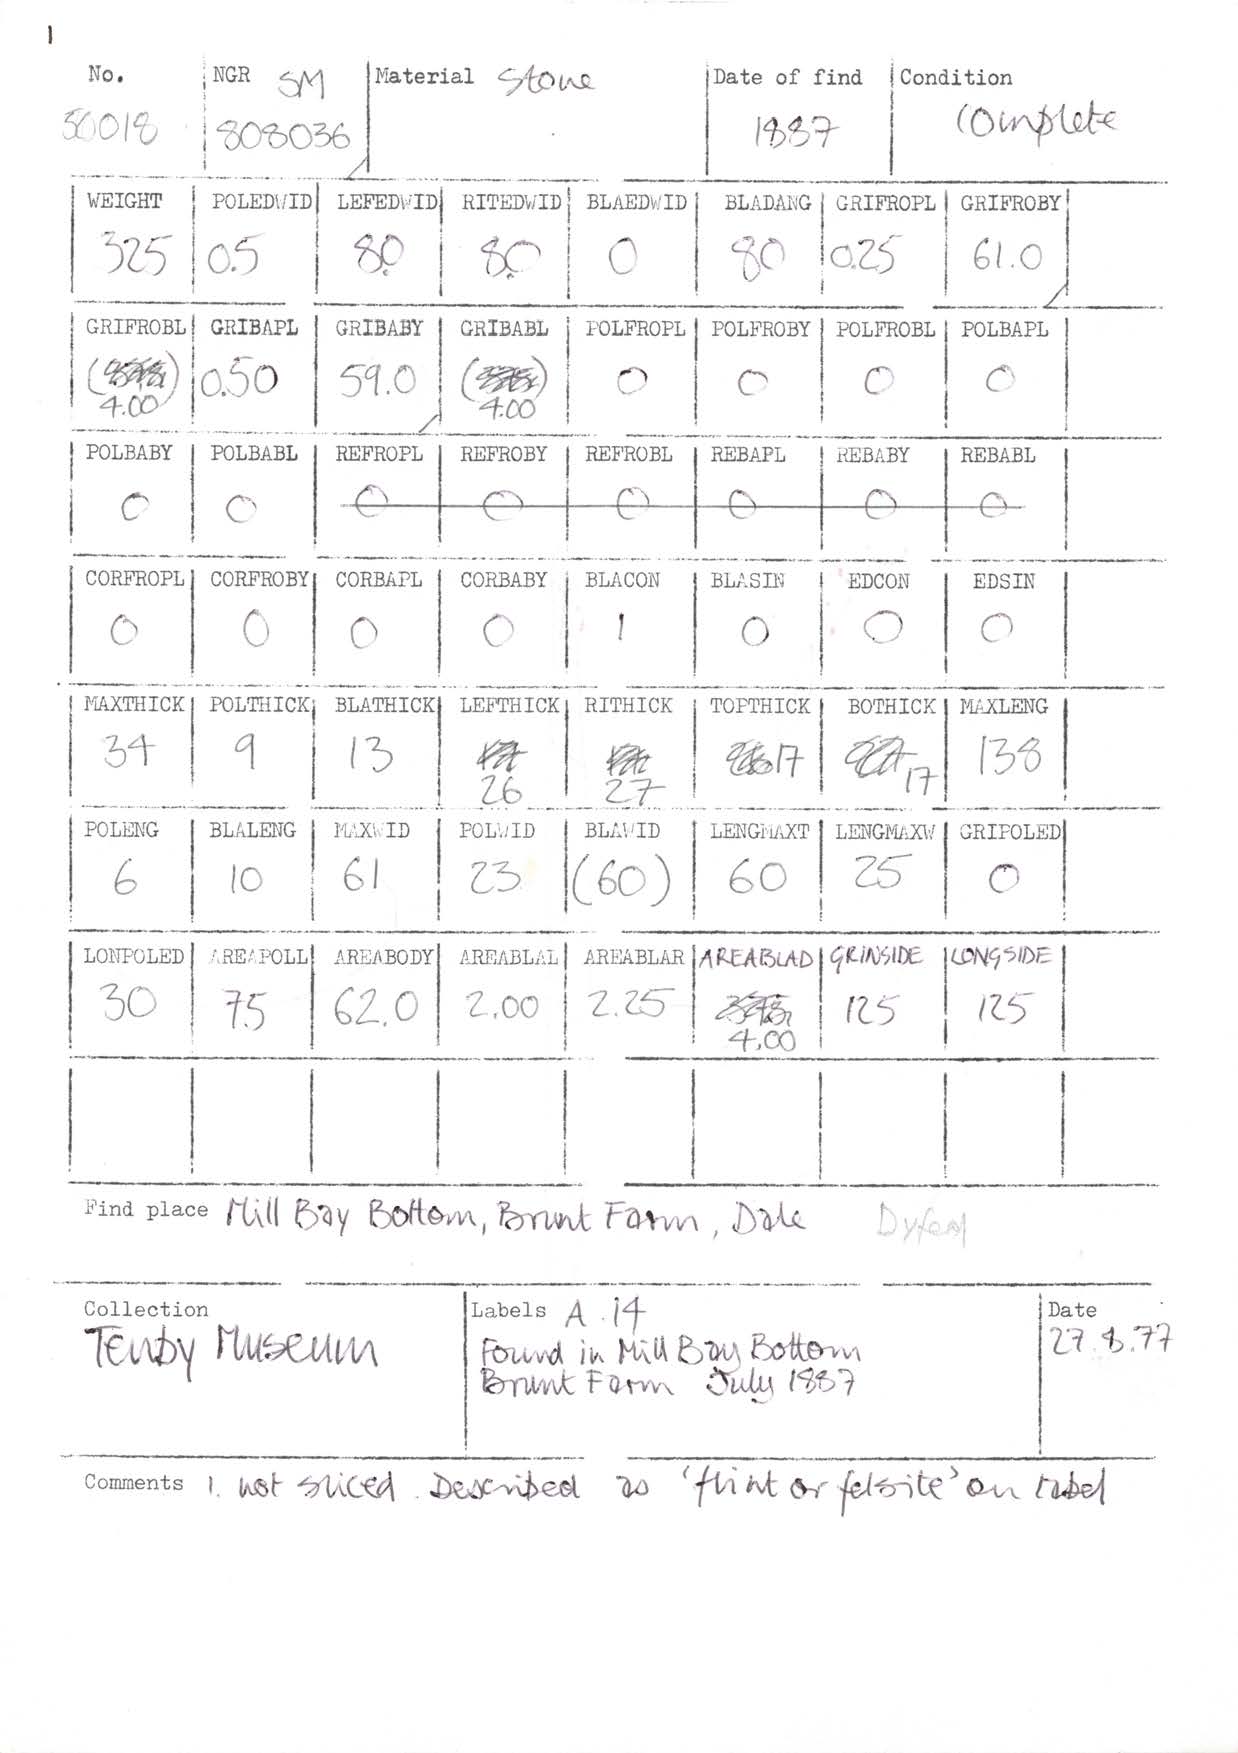 1
No. NGR SM Material Stone Date of find Condition
50018 808036 1887 Complete
WEIGHT POLEDWID LEFEDWID RITEDWID BLAEDWID BLADANG GRIFROPL GRIFROBY
325 0.5 8.0 8.0 0 80 0.25 61.0
GRIFROBL GRIBAPL GRIBABY GRIBABL POLFROPL POLFROBY POLFROBL POLBAPL
( ) 0.50 59.0 ( ) 0 0 0 0
4.00 4.00
POLBABY POLBABL REFROPL REFROBY REFROBL REBAPL REBABY REBABL
0 0 0 0 0 0 0 0
CORFROPL CORFROBY CORBAPL CORBABY BLACON BLASIN EDCON EDSIN
0 0 0 0 1 0 0 0
MAXTHICK POLTHICK BLATHICK LEFTHICK RITHICK TOPTHICK BOTHICK MAXLENG
34 9 13 17 17 138
26 27
POLENG BLALENG MAXWID POLWID BLAWID LENGMAXT LENGMAXW GRIPOLED
6 10 61 23 (60) 60 25 0
LONPOLED AREAPOLL AREABODY AREABLAL AREABLAR AREABLAD GRINSIDE LONGSIDE
30 75 62.0 2.00 2.25 125 125
4.00
Find place Mill Bay Bottom, Brunt Farm, Dale Dyfed
Collection Labels A.14 Date
Tenby Museum Found in Mill Bay Bottom 27.8.77
Brunt Farm July 1887
Comments 1. not sliced. Described as 'flint or felsite' on label